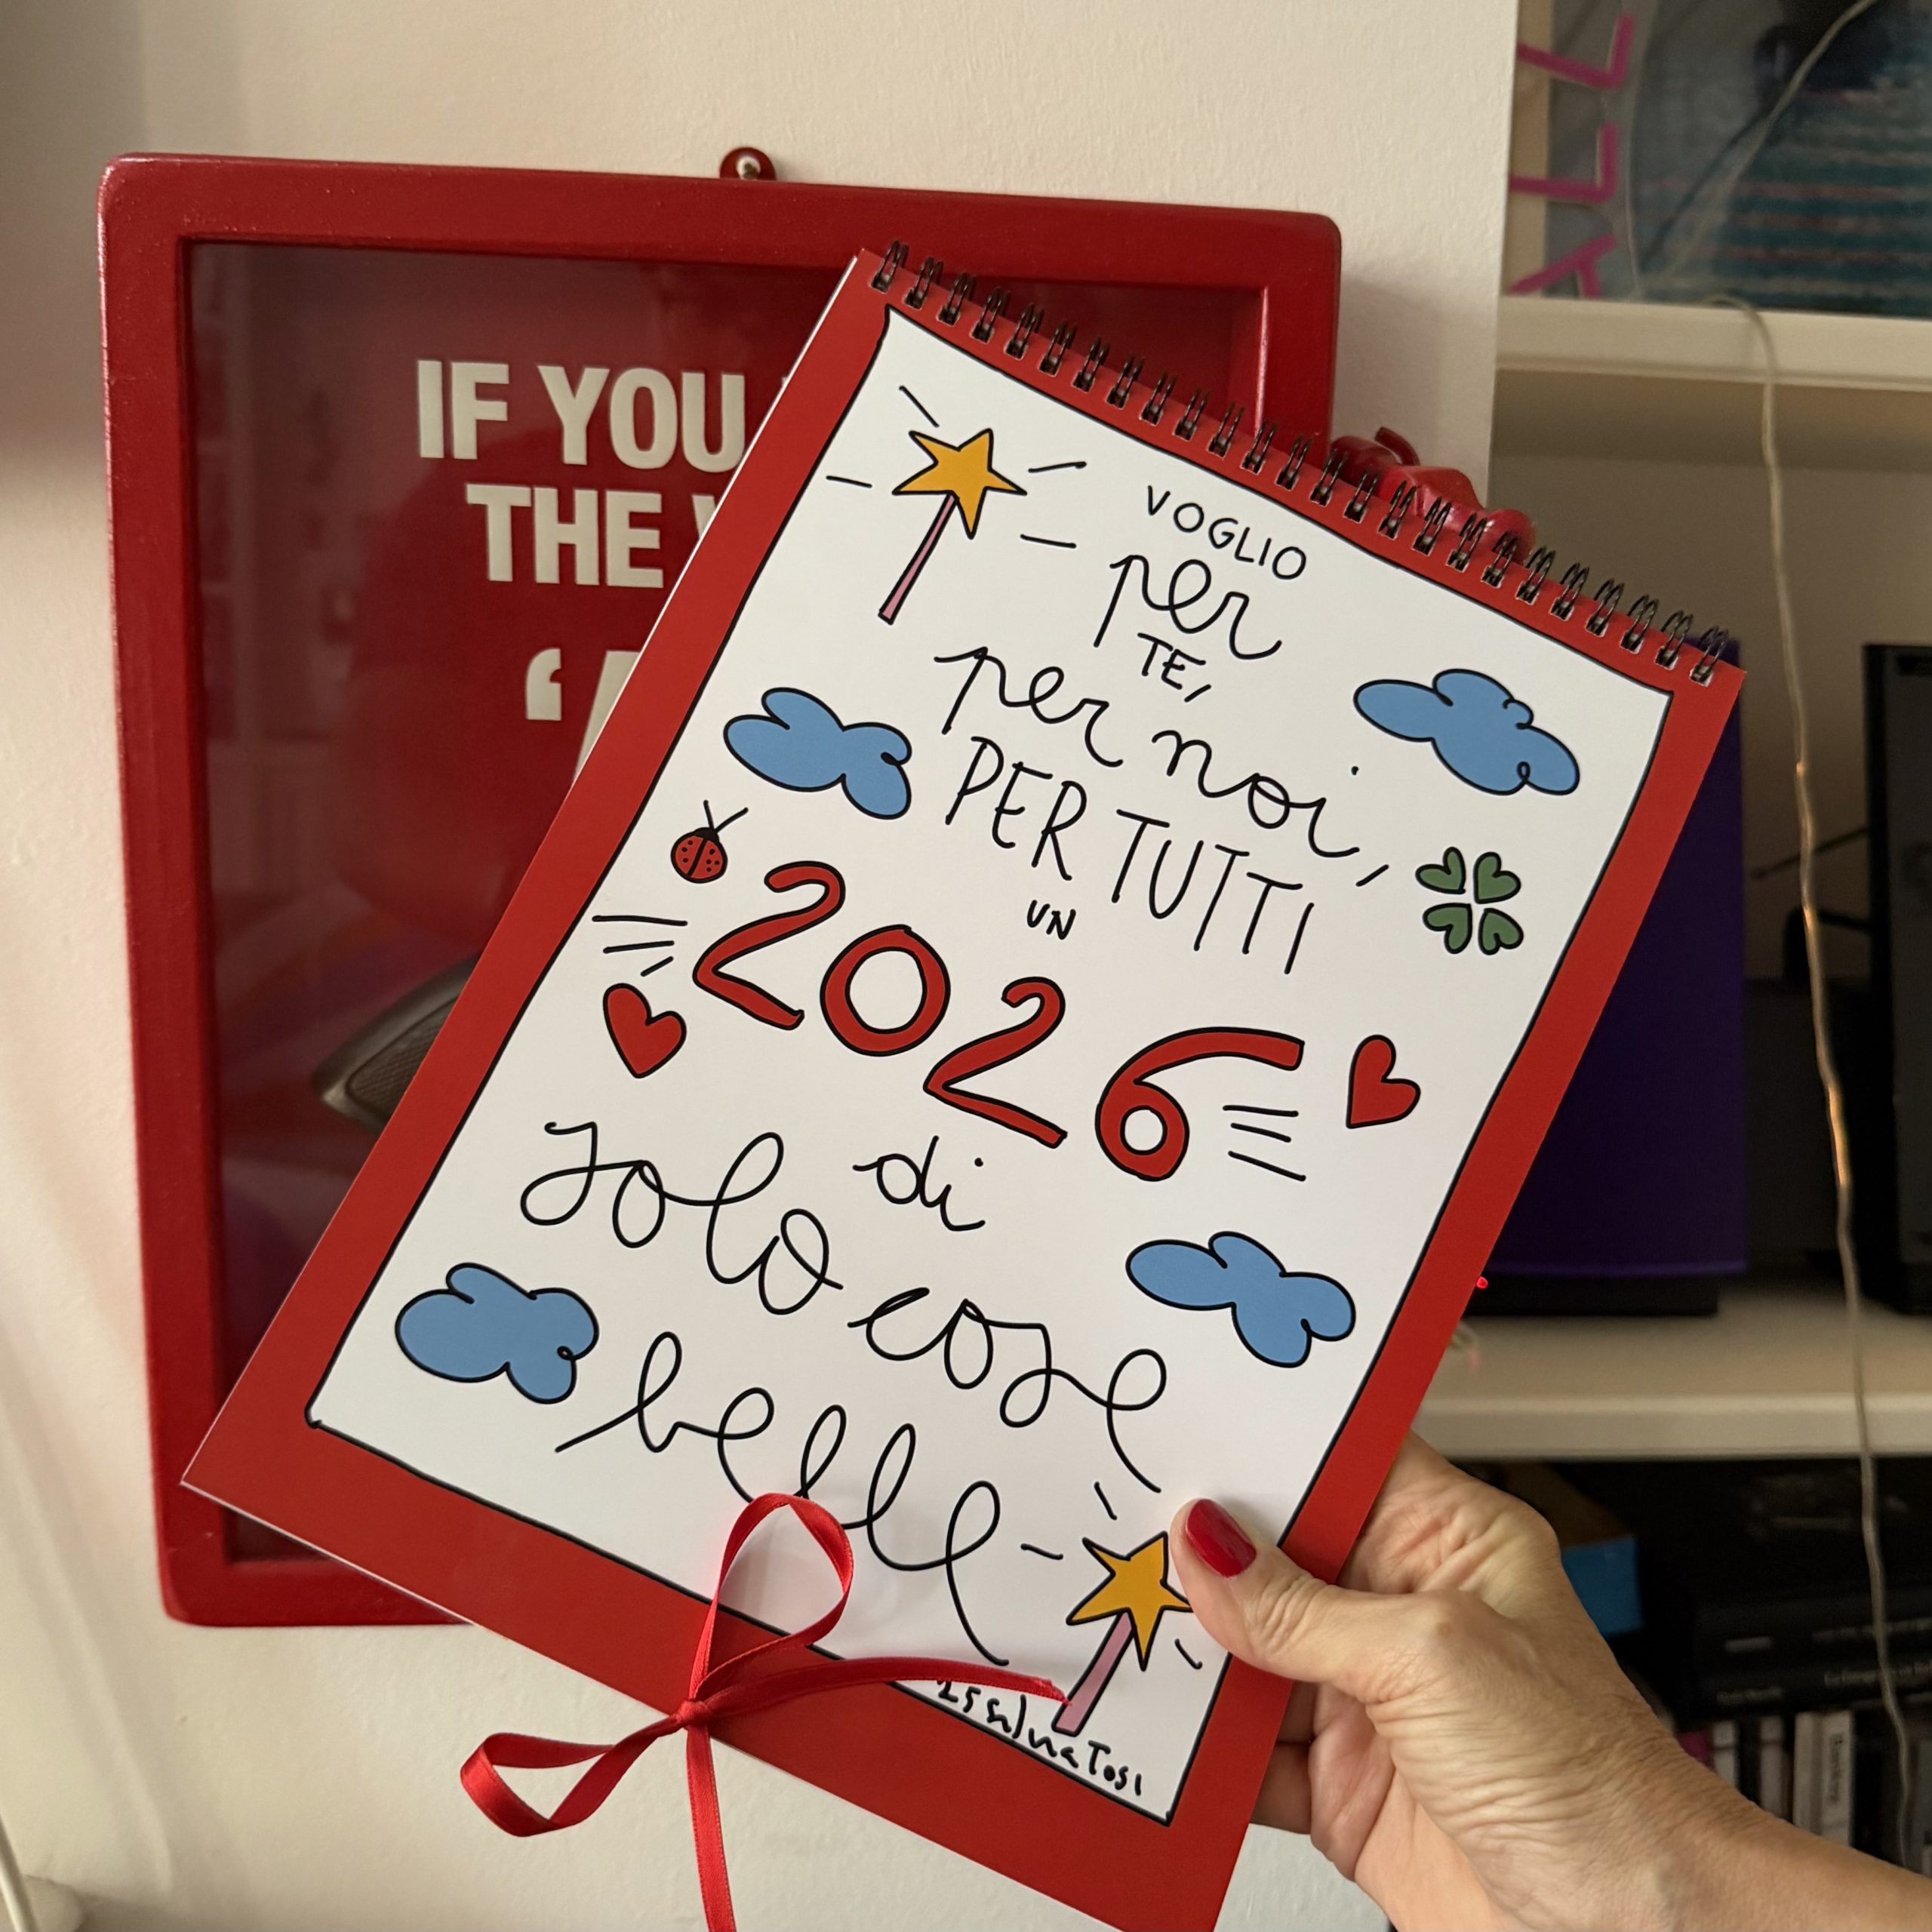 IF YOU
THE
VOGLIO
per
TE,
per noi,
PER TUTTI
UN
2026
di
solo cose
belle